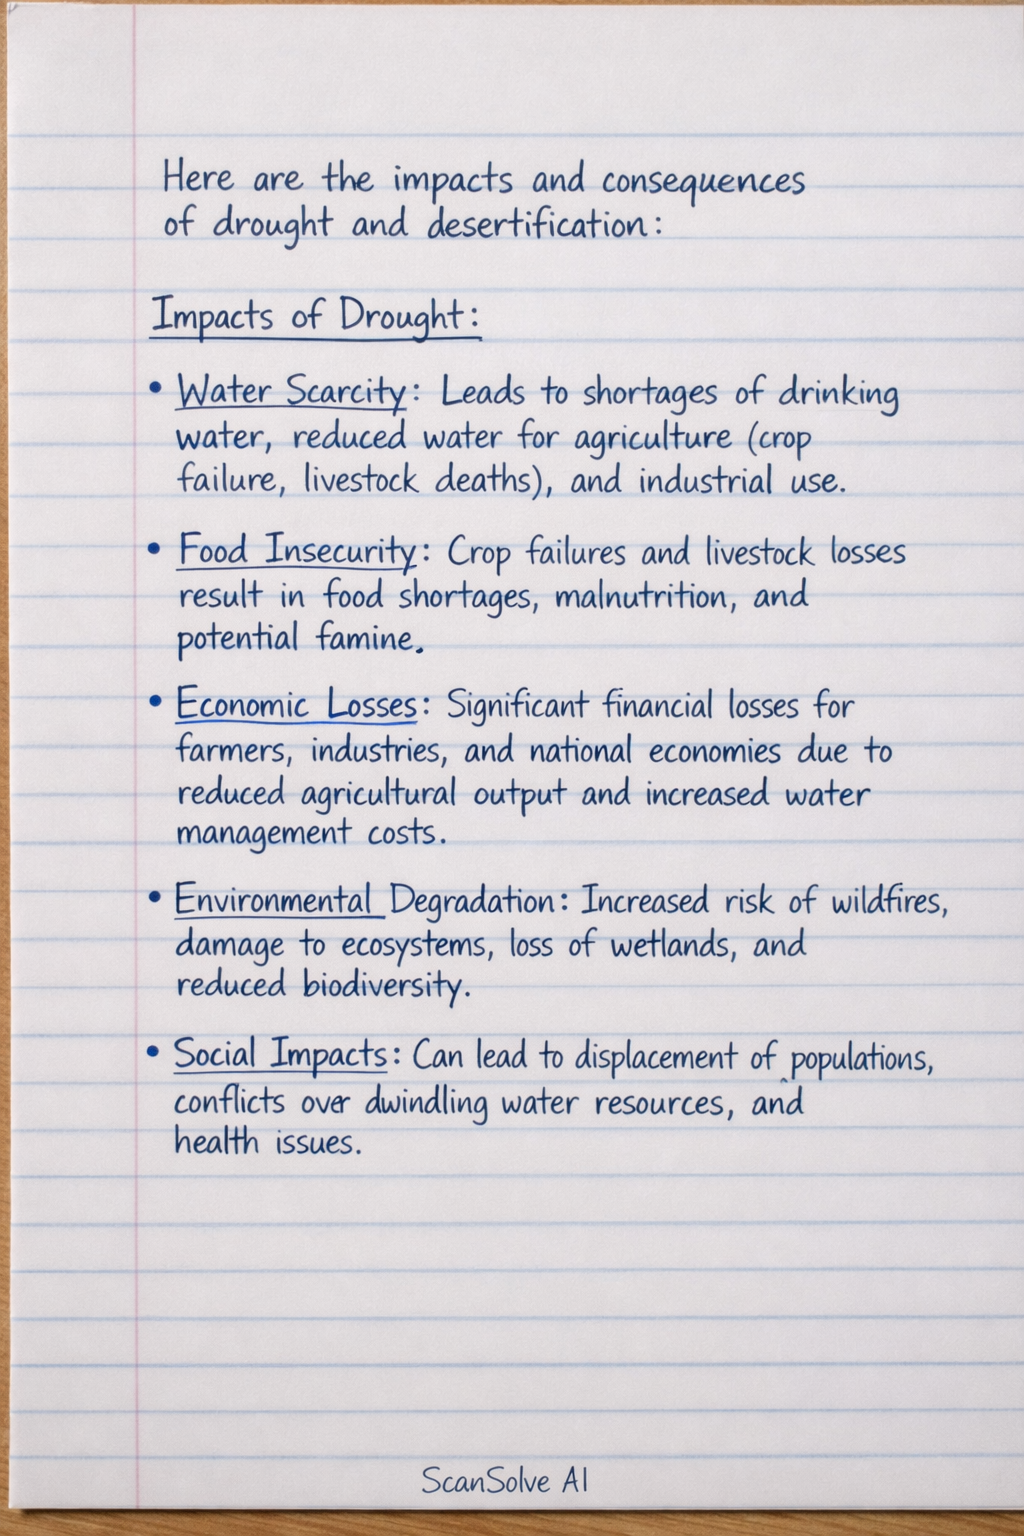 Here are the impacts and consequences
of drought and desertification:
Impacts of Drought:
• Water Scarcity: Leads to shortages of drinking
water, reduced water for agriculture (crop
failure, livestock deaths), and industrial use.
• Food Insecurity: Crop failures and livestock losses
result in food shortages, malnutrition, and
potential famine.
• Economic Losses: Significant financial losses for
farmers, industries, and national economies due to
reduced agricultural output and increased water
management costs.
• Environmental Degradation: Increased risk of wildfires,
damage to ecosystems, loss of wetlands, and
reduced biodiversity.
• Social Impacts: Can lead to displacement of populations,
conflicts over dwindling water resources, and
health issues.
ScanSolve AI